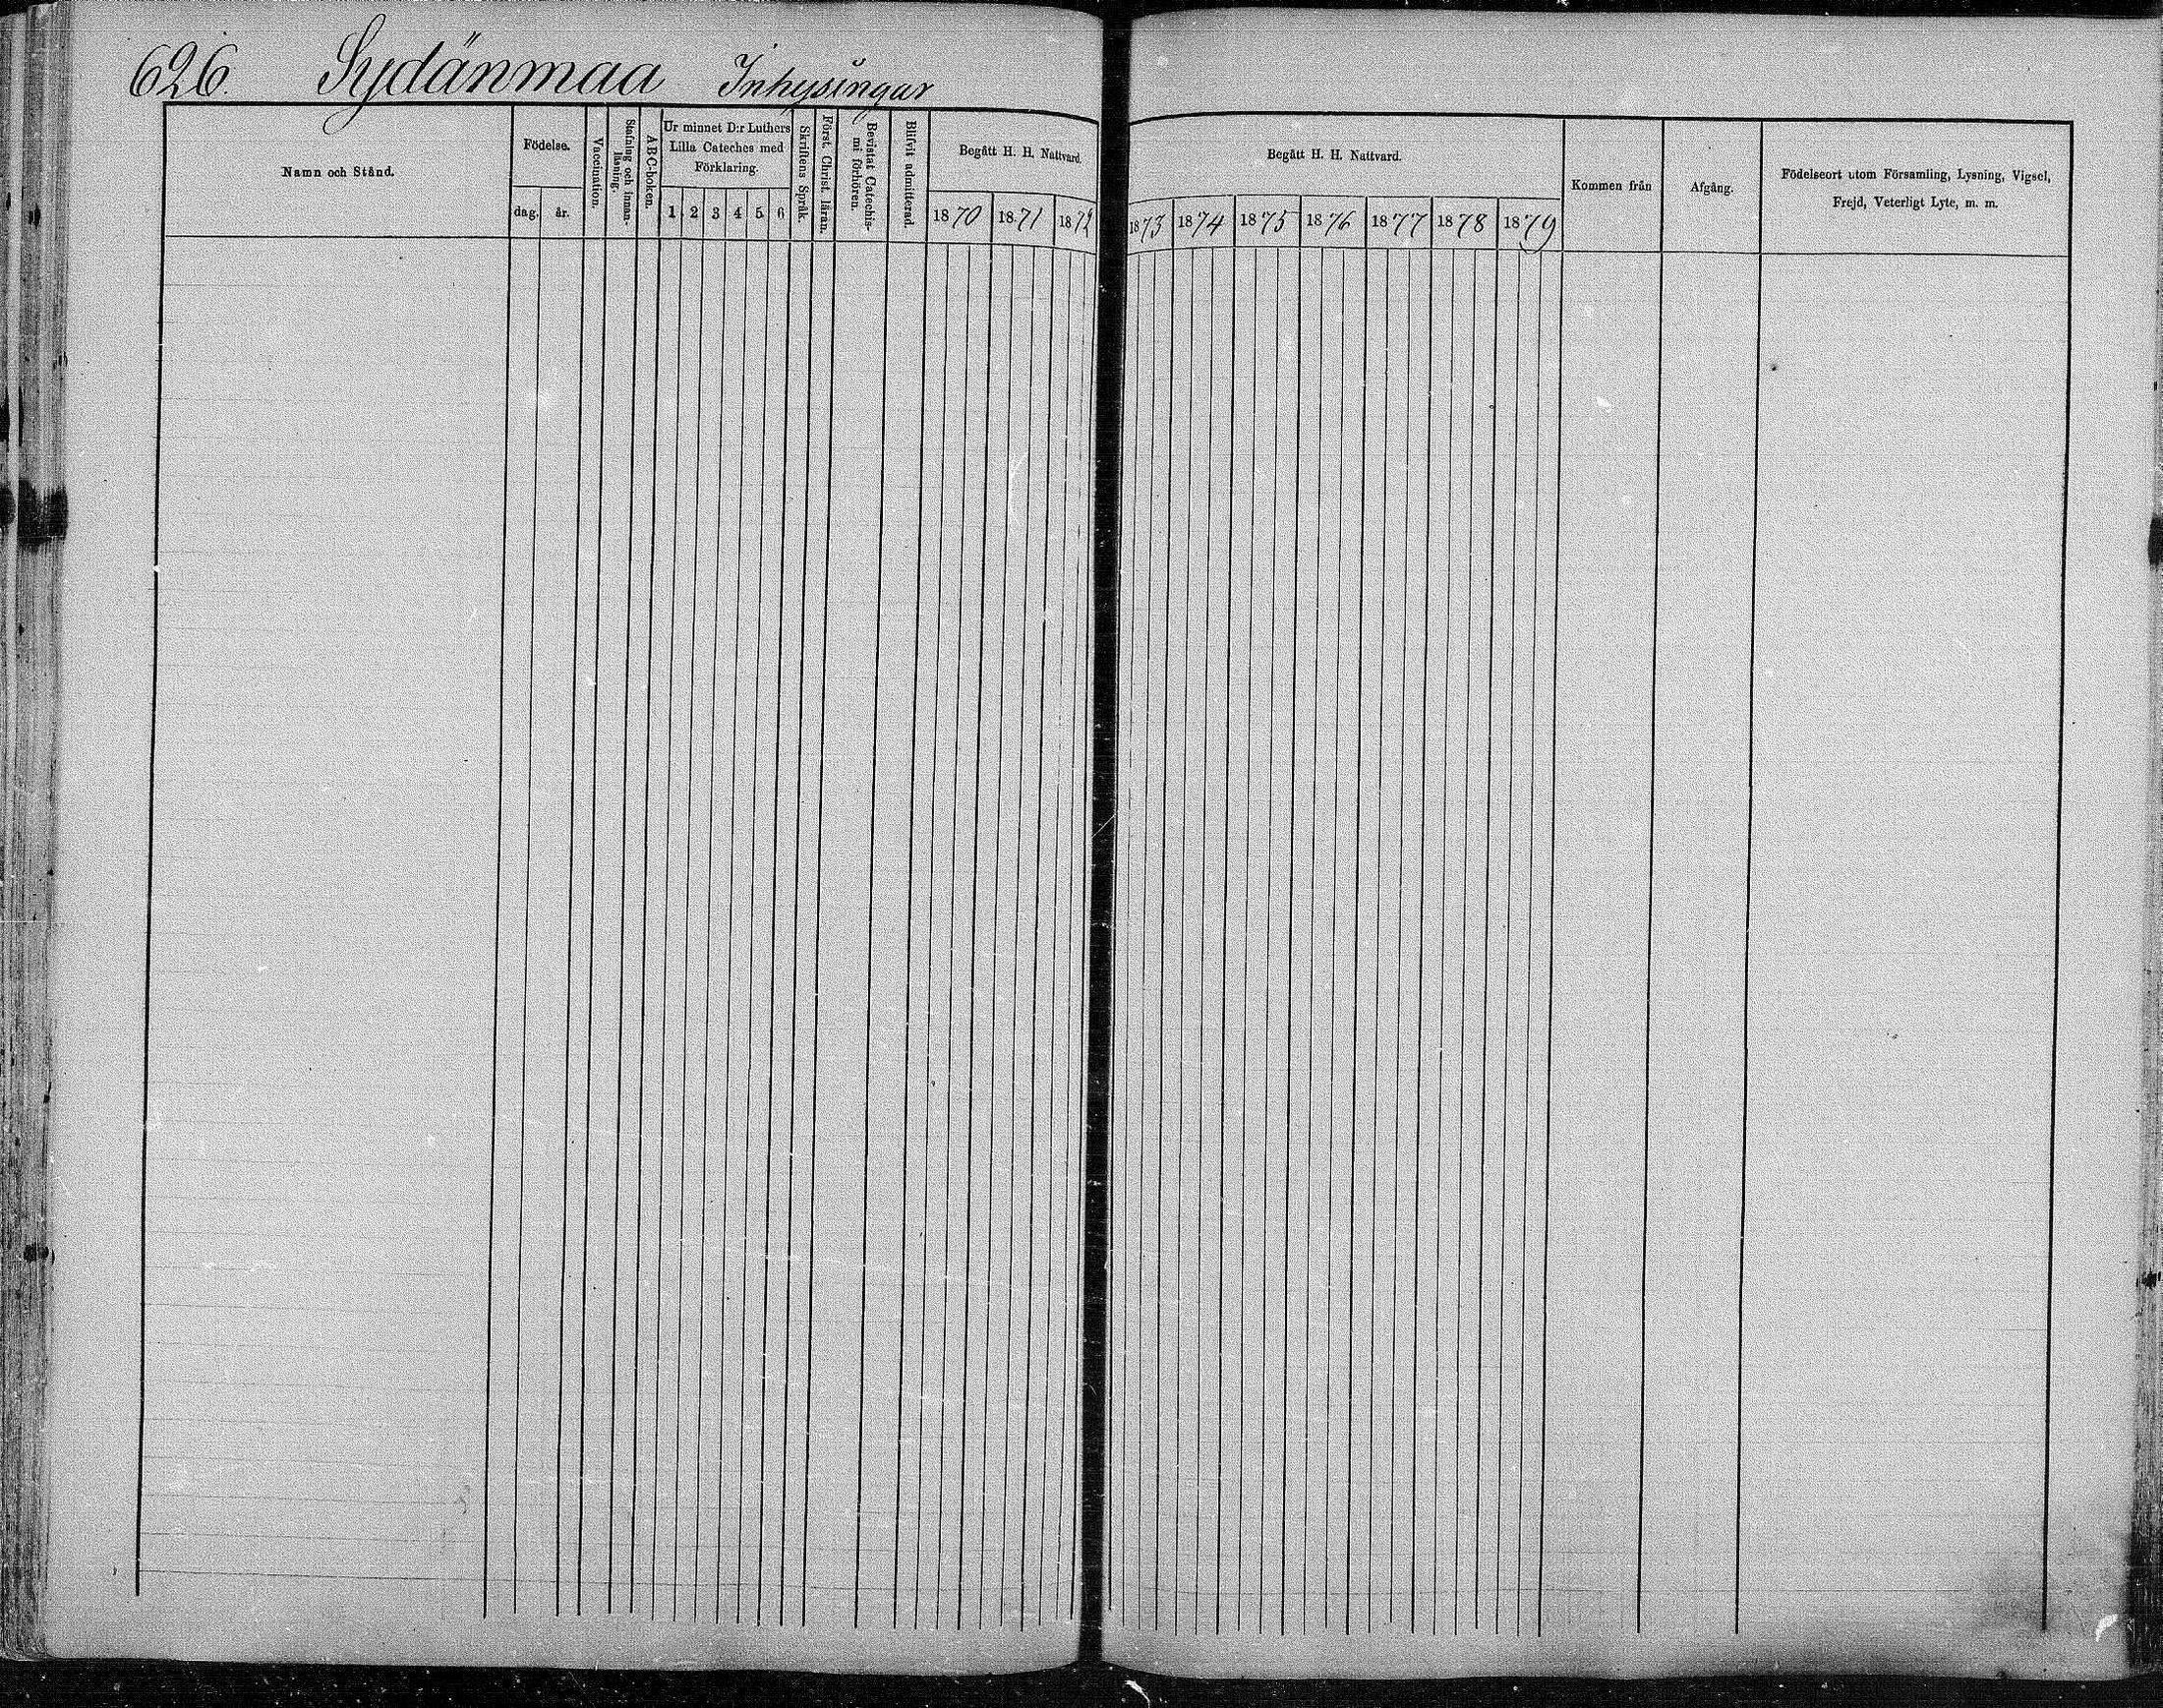 626. Sydänmaa Inhysingar
Namn och Stånd.
Födelse.
dag. år.
Vaccination.
Stafning och innan-
läsning.
ABC-boken.
Ur minnet D:r Luthers
Lilla Cateches med
Förklaring.
1 2 3 4 5 6
Skriftens Språk.
Först. Christ. läran.
Bevistat Catechis-
mi förhören.
Blifvit admitterad.
Begått H. H. Nattvard.
1870 1871 1872
Begått H. H. Nattvard.
1873 1874 1875 1876 1877 1878 1879
Kommen från
Afgång.
Födelseort utom Församling, Lysning, Vigsel,
Frejd, Veterligt Lyte, m. m.